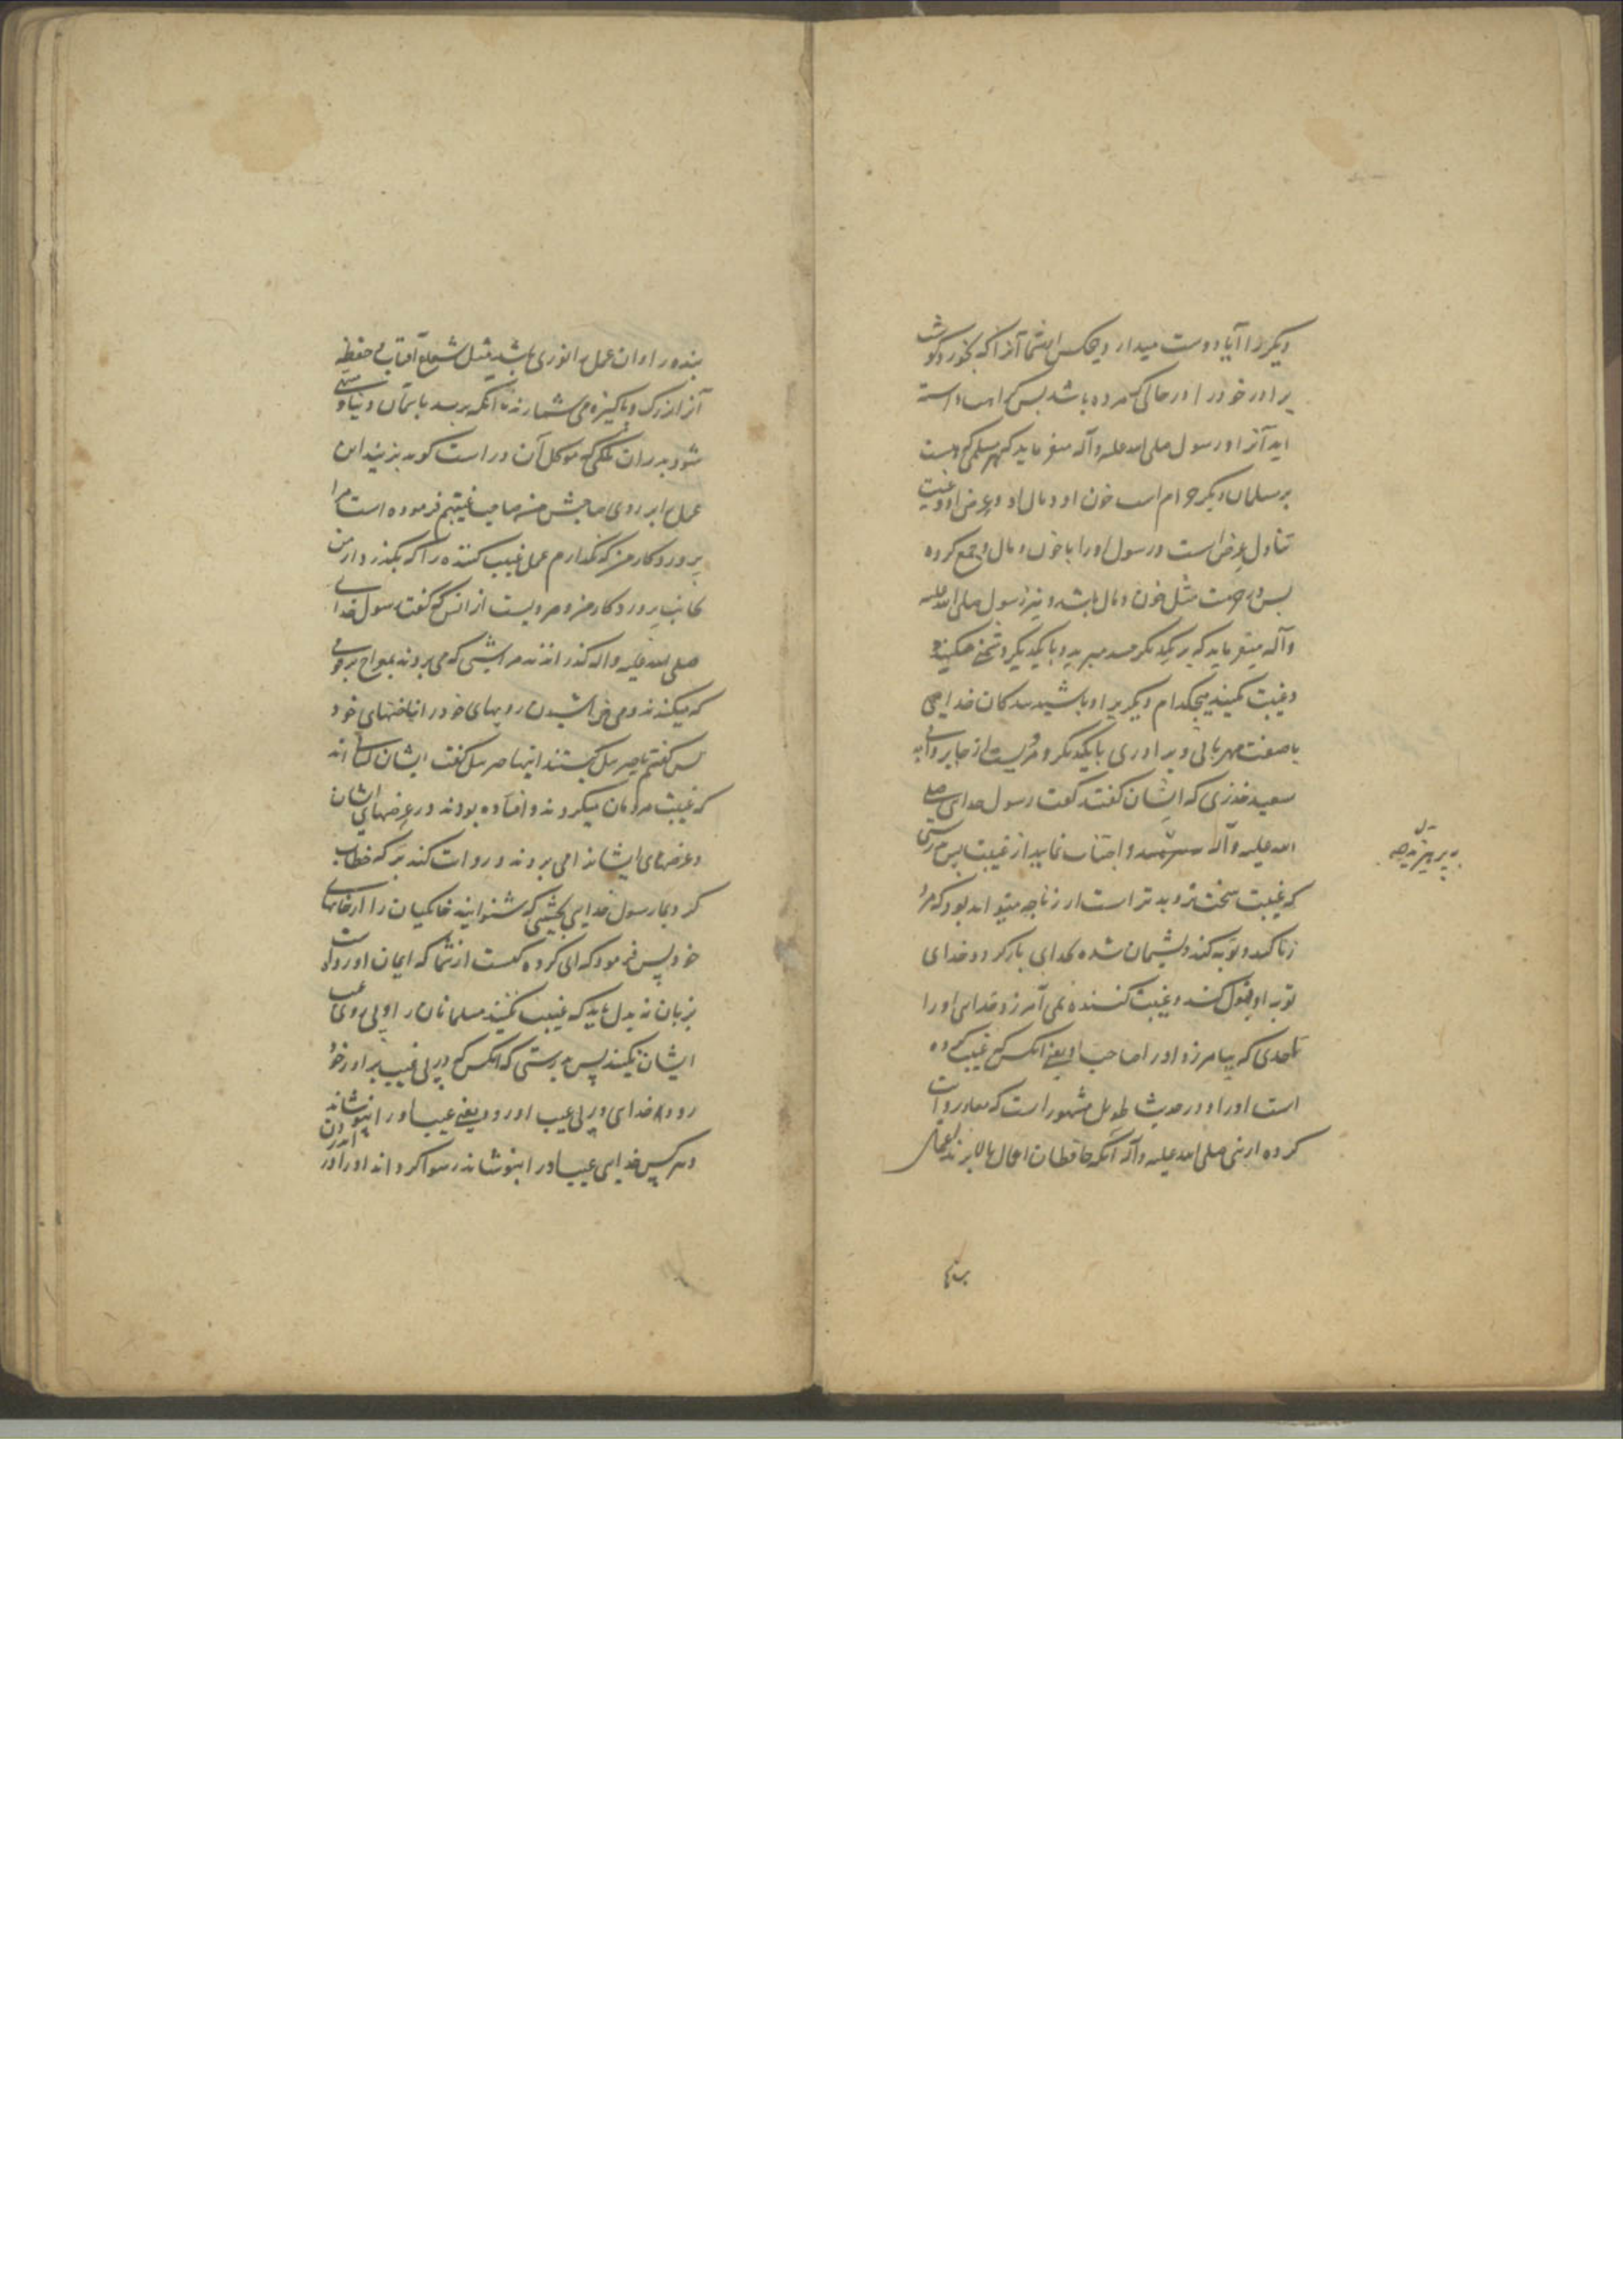 دیکریرا آیا دوست میدارد هیچکس از شما آنرا که بخورد کوشت
برادر خود را در حالی که مرده باشد پس کراهت داشته
اید آنرا و رسول صلی الله علیه و آله میفرماید که هر مسلمی که هست
بر مسلمان دیکر حرام است خون او و مال او و عرض او و غیبت
تناول عرض است و رسول او را با خون و مال جمع کرده
پس در حرمت مثل خون و مال باشد و نیز رسول صلی الله علیه
و آله میفرماید که بر یکدیکر حسد مبرید و با یکدیکر دشمنی مکنید و
و غیبت نکنید هیچکدام دیکریرا و باشید بندکان خدای
با صفت مهربانی و برادری با یکدیکر و مرویست از جابر و ابی
سعید خدری که ایشان کفتند کفت رسول خدای صلی
الله علیه و آله و اجتناب نمایید از غیبت پس بدرستی
که غیبت سخت تر و بدتر است از زنا چه میتواند بود که مرد
زنا کند و توبه کند و پشیمان شده بخدای باز کردد و خدای
توبه او قبول کند و غیبت کننده نمی آمرزد خدای او را
تا حدی که بیامرزد او را صاحب او یعنی آنکس که غیبت کرده
است او را و در حدیث طویل مشهور است که معاذ روایت
کرده از نبی صلی الله علیه و آله آنکه حافظان اعمال بالا برند اعمال
بپرهیزید
بنده را و آن عمل را نوری باشد مثل شعاع آفتاب و حفظه
آنرا بزرک و پاکیزه می شمارند تا آنکه برسد باسمان دنیا و منتهی
شود بدر آن ملکی که موکل آن در است کوید بزنید این
عمل را بر روی صاحبش من صاحب غیبتم فرموده است مرا
پروردکار من که نکذارم عمل غیبت کننده را که بکذرد از من
بجانب پروردکار من و مرویست از انس که کفت رسول خدای
صلی الله علیه و آله کذرانندند مرا شبی که می بردند بمعراج بر قومی
که میکندند و می خراشیدن رویهای خود را بناخنهای خود
پس کفتم یا جبرئیل کیستند اینها جبرئیل کفت ایشان کسانی اند
که غیبت مردمان میکردند و افتاده بودند در عرضهای ایشان
و عرضهای ایشانرا می بردند و روایت کنند که خطاب
کرد بما رسول خدای بحیثیتی که شنوانید خاکیان را از خانهای
خود پس فرمود که ای کروه کیست از شما که ایمان آورده است
بزبان نه بدل باید که غیبت نکنید مسلمانان را و پی روی عیب
ایشان نکنید پس بدرستی که آنکس که در پی عیب برادر خود
رود خدای در پی عیب او رود یعنی عیب او را نپوشاند
و هر کس خدای عیب او را نپوشاند رسوا کرداند او را در اندرون